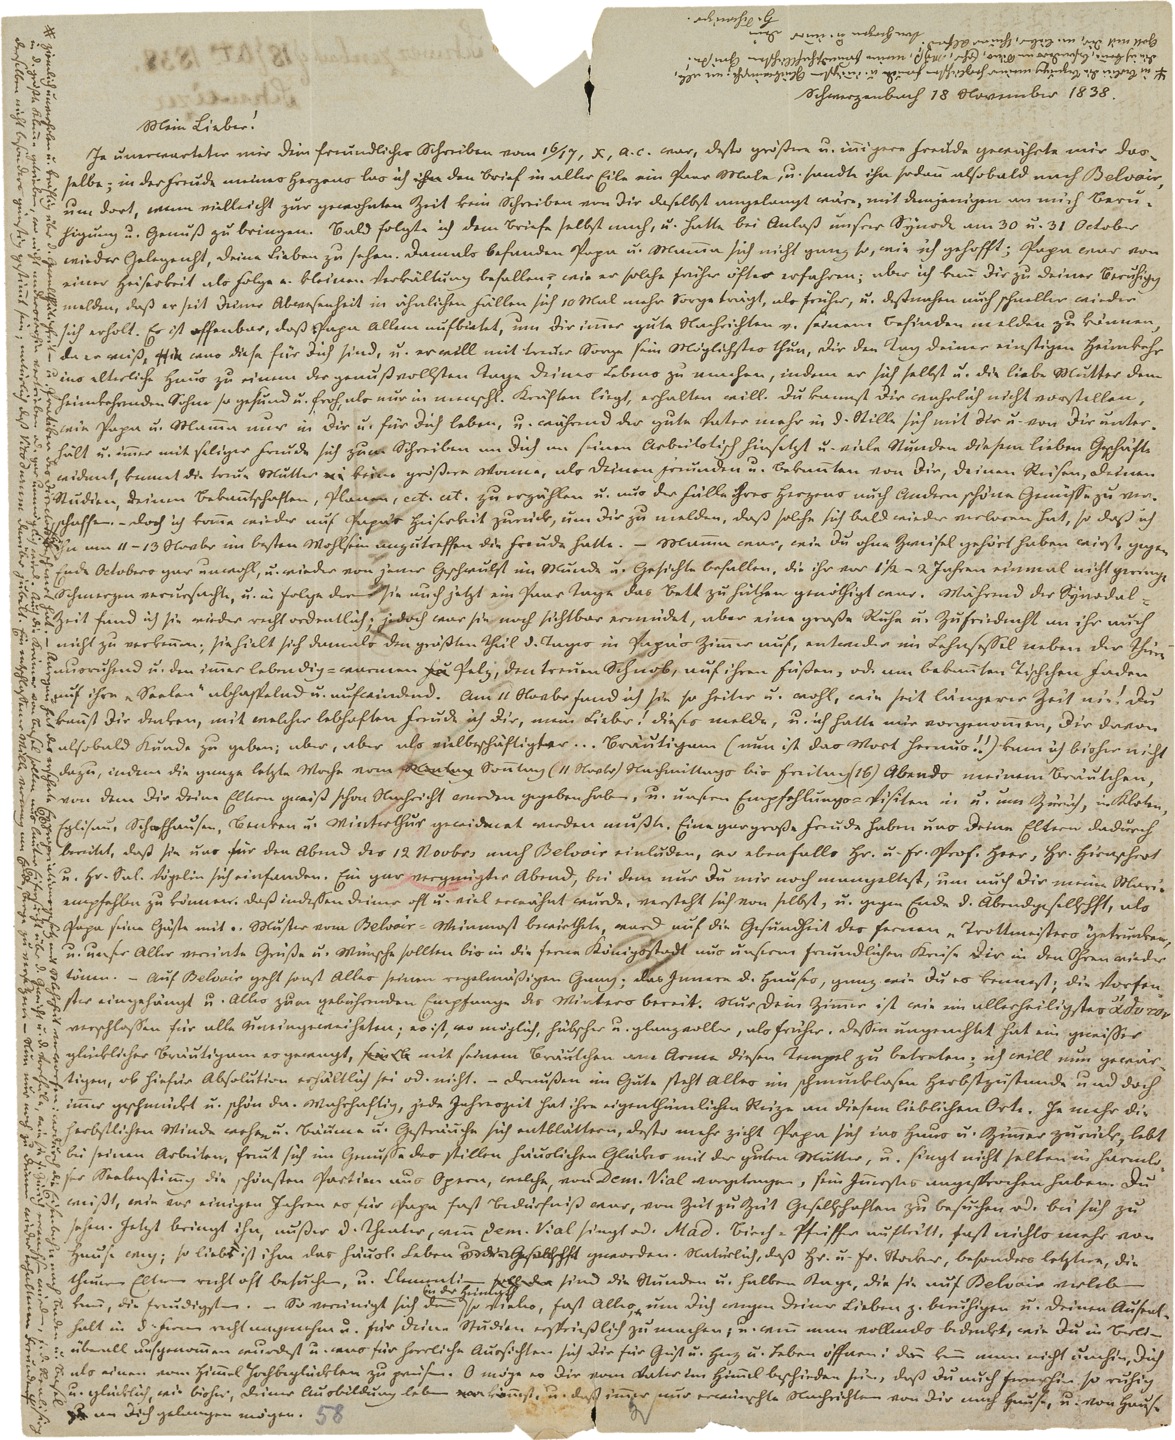 Schwerzenbach 18 November 1838.
Mein Lieber!
Je unerwarteter mir Dein freundliches Schreiben vom 16/17, X, a. c. war, desto größere u. innigere Freude gewährte mir das-
selbe; in der Freude meines Herzens las ich den Brief in aller Eile ein Paar Male, u. sandte ihn sodann alsobald nach Belvoir,
um dort, wenn vielleicht zur gewohnten Zeit kein Schreiben von Dir daselbst angelangt wäre, mit demjenigen an mich Beru-
higung u. Genuß zu bringen. Bald folgte ich dem Briefe selbst nach, u. hatte bei Anlaß unsrer Synode am 30 u. 31 October
wieder Gelegenheit, Deine Lieben zu sehen. Damals befanden Papa u. Mamma sich nicht ganz so, wie ich gehofft; Papa war von
einer Heiserkeit als Folge e. kleinen Verkältung befallen, wie er solche früher öfters erfahren; aber ich kann Dir zu Deiner Beruhigg
melden, daß er seit Deiner Abwesenheit in ähnlichen Fällen sich 10 Mal mehr Sorge trägt, als früher, u. deßnahen auch schneller wieder
sich erholt. Es ist offenbar, daß Papa Allem aufbietet, um Dir immer gute Nachrichten v. seinem Befinden melden zu können,
da er weiß, was diese für Dich sind, u. er will mit treuer Sorge sein Möglichstes thun, Dir den Tag Deiner einstigen Heimkehr
ins elterliche Haus zu einem der genußvollsten Tage Deines Lebens zu machen, indem er sich selbst u. die liebe Mutter dem
heimkehrenden Sohne so gesund u. froh, als nur in menschl. Kräften liegt, erhalten will. Du kannst Dir wahrlich nicht vorstellen,
wie Papa u. Mamma nur in Dir u. für Dich leben, u. während der gute Vater mehr in d. Stille sich mit Dir u. von Dir unter-
hält u. immer mit seliger Freude sich zum Schreiben an Dich an seinen Arbeitstisch hinsetzt u. viele Stunden diesem lieben Geschäfte
widmet, kennt die treue Mutter keine größere Wonne, als Deinen Freunden u. Bekannten von Dir, Deinen Reisen, Deinen
Studien, Deinen Bekanntschaften, Planen, ect. ect. zu erzählen u. aus der Fülle Ihres Herzens auch Andern schöne Genüsse zu ver-
schaffen. – Doch ich komme wieder auf Papas Heiserkeit zurück, um Dir zu melden, daß solche sich bald wieder verloren hat, so daß ich
ihn am 11–13 Novbr im besten Wohlsein anzutreffen die Freude hatte. – Mamma war, wie Du ohne Zweifel gehört haben wirst, gegen
Ende Octobers gar unwohl, u. wieder von jener Geschwulst im Munde u. Gesichte befallen, die ihr vor 1½–2 Jahren einmal nicht geringe
Schmerzen verursachte, u. in Folge deren sie auch jetzt ein Paar Tage das Bett zu hüthen genöthigt war. Während der Synodal-
zeit fand ich sie wieder recht ordentlich; jedoch war sie noch sichtbar ermüdet, aber eine große Ruhe u. Zufriedenheit an ihr auch
nicht zu verkennen; sie hielt sich damals den größten Theil d. Tages in Papas Zimmer auf, entweder im Lehnsessel neben der
ausruhend u. den immer lebendig-warmen Pelz, den treuen Schnob, auf ihren Füßen, od. am bekannten Tischchen Faden
auf ihre „Seelen" abhaspelnd u. aufwindend. Am 11 Novbr fand ich sie so heiter u. wohl, wie seit längerer Zeit nie! Du
kannst Dir denken, mit welcher lebhaften Freude ich Dir, mein Lieber! dieses melde, u. ich hatte mir vorgenommen, Dir davon
alsobald Kunde zu geben; aber, aber als vielbeschäftigter... Bräutigam (nun ist das Wort heraus!!) kam ich bisher nicht
dazu, indem die ganze letzte Woche vom Sonntag (11 Novbr) Nachmittags bis Freitag (16) Abends meinem Bräutchen,
von dem Dir Deine Eltern gewiß schon Nachricht werden gegeben haben, u. unsren Empfehlungs-Visiten in u. um Zürich, in Kloten,
Eglisau, Schaffhausen, Benken u. Winterthur gewidmet werden mußte. Eine gar große Freude haben uns Deine Eltern dadurch
bereitet, daß sie uns für den Abend des 12 Novbrs nach Belvoir einluden, wo ebenfalls Hr. u. Fr. Prof. Heer, Hr. Hirzel
u. Hr. Sal. Vögelin sich einfanden. Ein gar vergnügter Abend, bei dem nur Du mir noch mangeltest, um auch Dir meine Marie
empfehlen zu können. Daß indessen Deiner oft u. viel erwähnt wurde, versteht sich von selbst, u. gegen Ende d. Abendgesellschft, als
Papa seine Gäste mit e. Muster vom Belvoir-Weinmost bewirthete, ward auf die Gesundheit des fernen „Trottmeisters" getrunken,
u. unser Aller vereinte Grüße u. Wünsche sollten bis in die ferne Königsstadt aus unsrem freundlichen Kreise Dir in den Ohren wieder
tönen. – Auf Belvoir geht sonst Alles seinen regelmäßigen Gang; das Innere d. Hauses, ganz wie Du es kennst; die Vorfen-
ster eingehängt u. Alles zum gebührenden Empfange des Winters bereit. Nur Dein Zimmer ist wie ein allerheiligstes ἄδυτον
verschlossen für alle Uneingeweihten; es ist, wo möglich, hübscher u. glanzvoller, als früher. Dessen ungeachtet hat ein gewisser
glücklicher Bräutigam es gewagt, mit seinem Bräutchen am Arme diesen Tempel zu betreten; ich will nun gewär-
tigen, ob hiefür Absolution erhältlich sei od. nicht. – Draußen im Gute steht Alles im schmucklosen Herbstzustande und doch
immer geschmückt u. schön da. Wahrhaftig, jede Jahreszeit hat ihre eigenthümlichen Reize an diesem lieblichen Orte. Je mehr die
herbstlichen Winde wehen u. Bäume u. Gesträuche sich entblättern, desto mehr zieht Papa sich ins Haus u. Zimmer zurück, lebt
bei seinen Arbeiten, freut sich im Genusse des stillen häuslichen Glückes mit der guten Mutter, u. singt nicht selten in harmlo-
ser Seelenstimmg die schönsten Partien aus Opern, welche, von Dem. Vial vorgetragen, sein Innerstes angesprochen haben. Du
weißt, wie vor einigen Jahren es für Papa fast Bedürfniß war, von Zeit zu Zeit Gesellschaften zu besuchen od. bei sich zu
sehen. Jetzt bringt ihn, außer d. Theater, wenn Dem. Vial singt od. Mad. Birch-Pfeiffer auftritt, fast nichts mehr von
Hause weg; so lieb ist ihm das häusl. Leben geworden. Natürlich, daß Hr. u. Fr. Stocker, besonders letztere, die
theuren Eltern recht oft besuchen, u. Clementinen sind die Stunden u. halben Tage, die sie auf Belvoir verleben
kann, die freudigsten. – So vereinigt sich in der Heimath so Vieles, fast Alles, um Dich wegen Deiner Lieben z. beruhigen u. Deinen Aufent-
halt in d. Ferne recht angenehm u. für Deine Studien ersprießlich zu machen; u. wenn man vollends bedenkt, wie Du in Berlin
überall aufgenommen wurdest u. was für herrliche Aussichten sich Dir für Geist u. Herz u. Leben öffnen: dann kann man nicht umhin, Dich
als einen vom Himmel Hochbeglückten zu preisen. O möge es Dir vom Vater im Himmel beschieden sein, daß Du auch fernerhin so ruhig
u. glücklich, wie bisher, Deiner Ausbildung leben kannst, u. daß immer nur erwünschte Nachrichten von Dir nach Hause, u. von Hause
an Dich gelangen mögen. 58